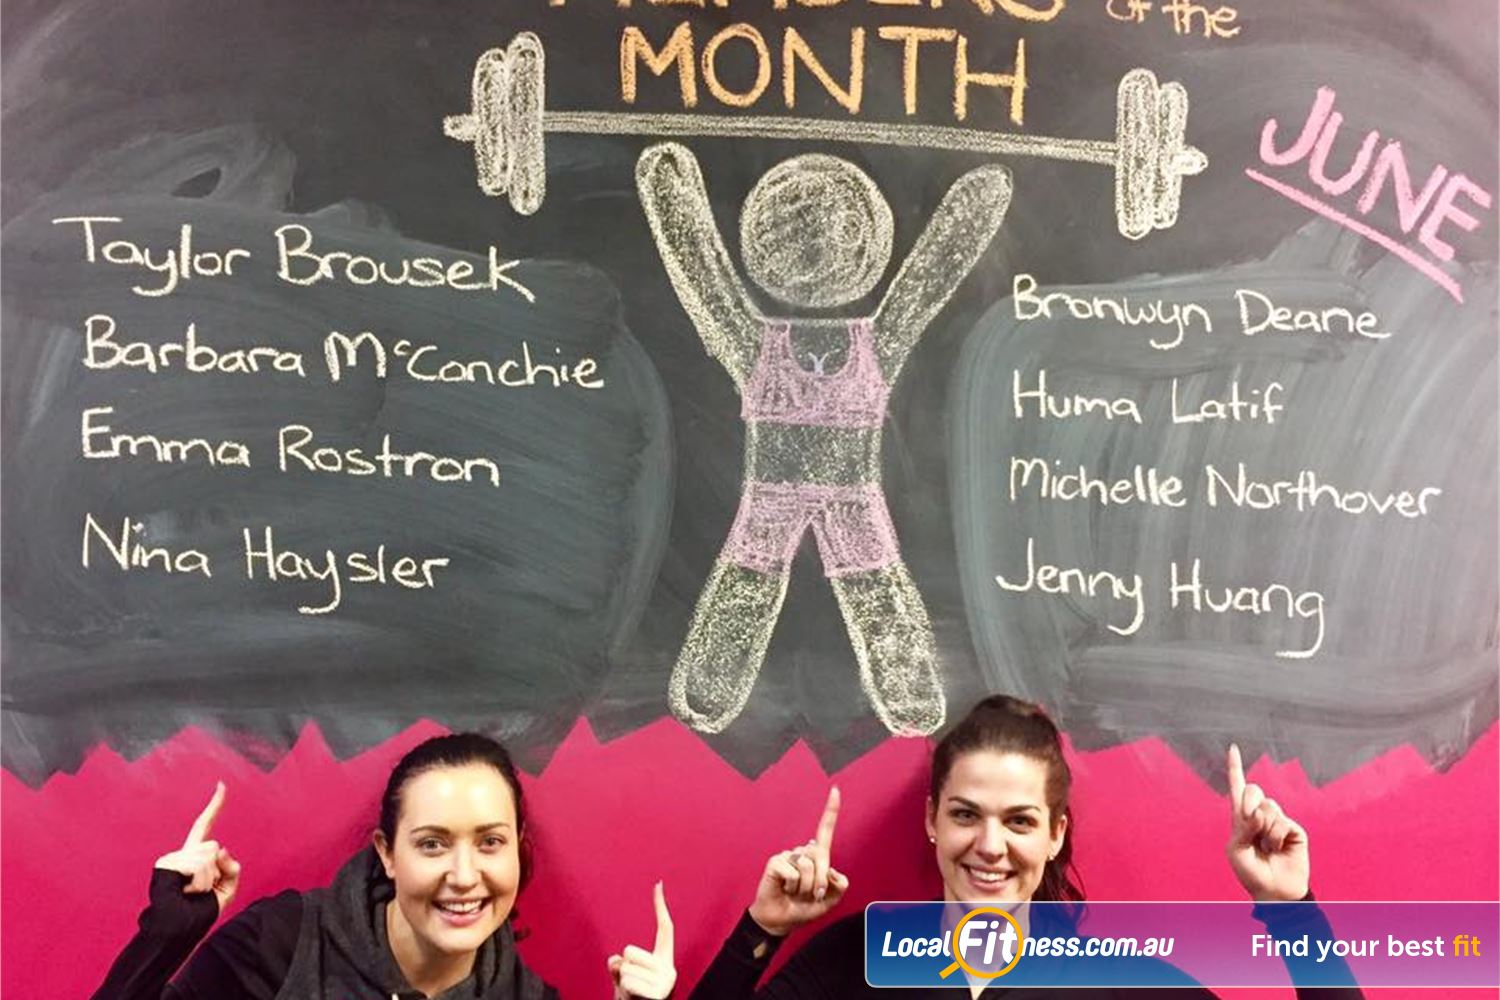 MEMBERS of the
MONTH
JUNE
Taylor Brousek
Barbara McConchie
Emma Rostron
Nina Haysler
Bronwyn Deane
Huma Latif
Michelle Northover
Jenny Huang
LocalFitness.com.au
Find your best fit